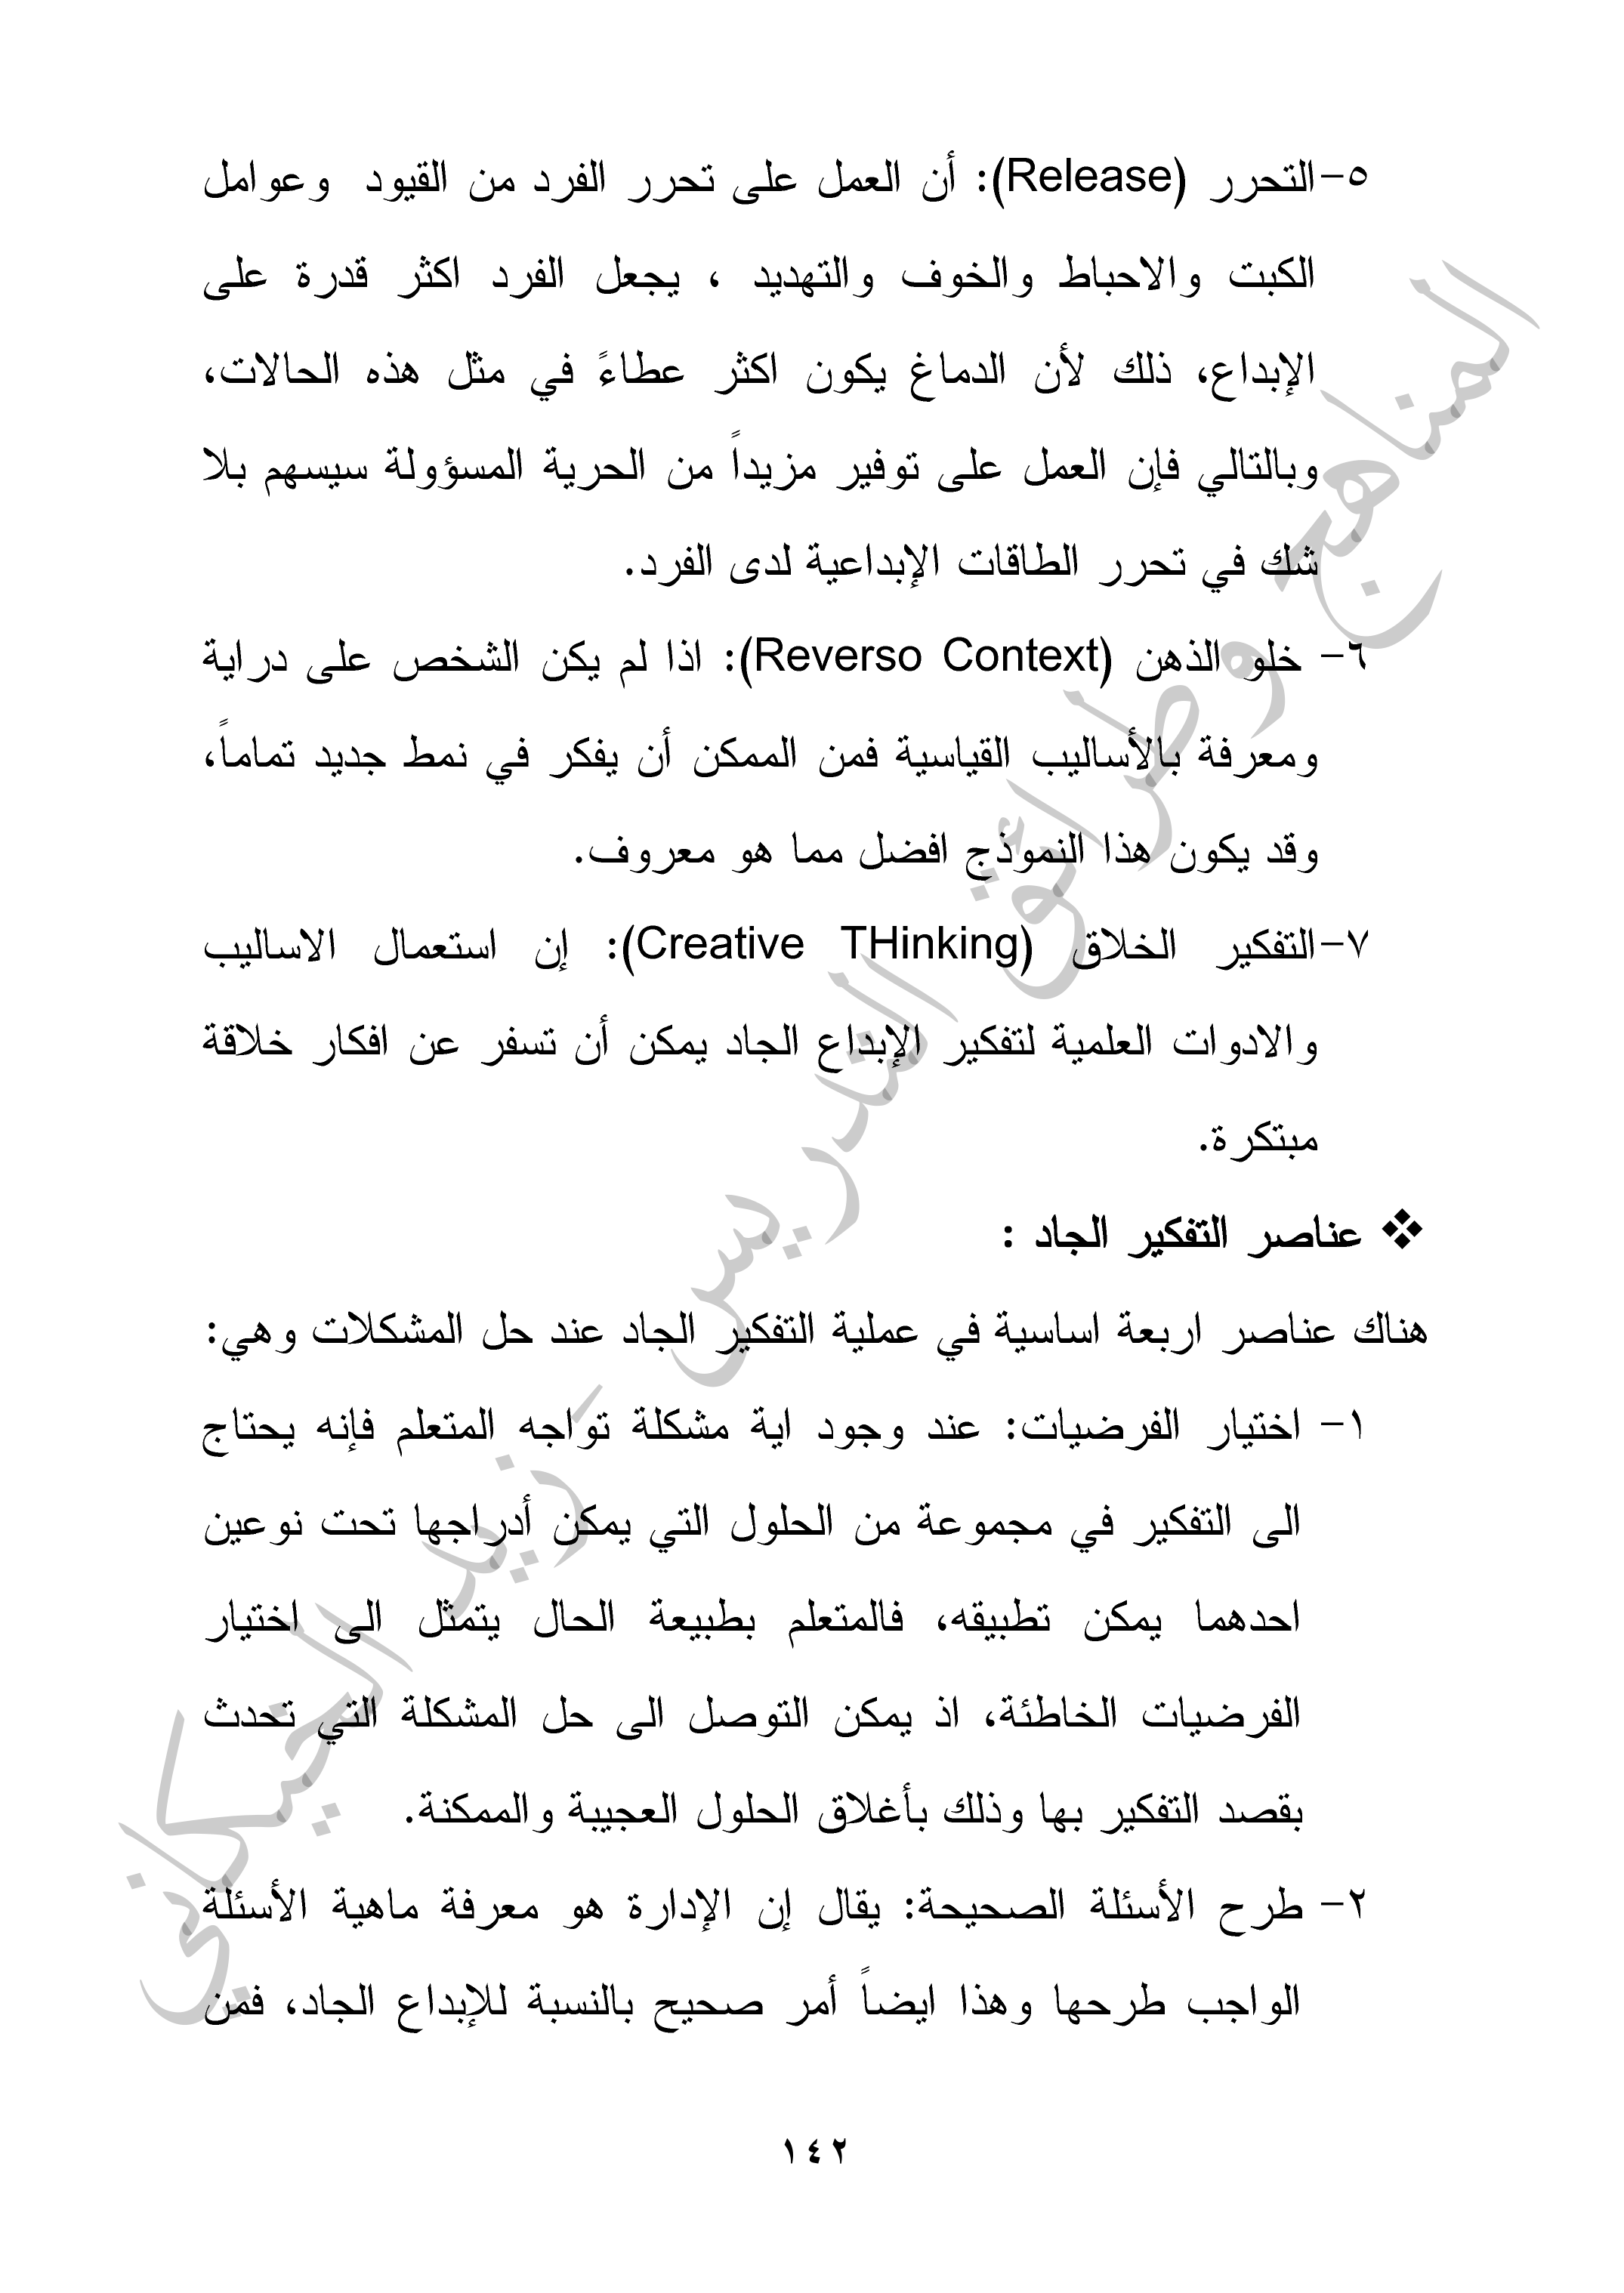 ٥-التحرر (Release): أن العمل على تحرر الفرد من القيود وعوامل
الكبت والاحباط والخوف والتهديد ، يجعل الفرد اكثر قدرة على
الإبداع، ذلك لأن الدماغ يكون اكثر عطاءً في مثل هذه الحالات،
وبالتالي فإن العمل على توفير مزيداً من الحرية المسؤولة سيسهم بلا
شك في تحرر الطاقات الإبداعية لدى الفرد.
٦- خلو الذهن (Reverso Context): اذا لم يكن الشخص على دراية
ومعرفة بالأساليب القياسية فمن الممكن أن يفكر في نمط جديد تماماً،
وقد يكون هذا النموذج افضل مما هو معروف.
٧-التفكير الخلاق (Creative THinking): إن استعمال الاساليب
والادوات العلمية لتفكير الإبداع الجاد يمكن أن تسفر عن افكار خلاقة
مبتكرة.
❖ عناصر التفكير الجاد :
هناك عناصر اربعة اساسية في عملية التفكير الجاد عند حل المشكلات وهي:
١- اختيار الفرضيات: عند وجود اية مشكلة تواجه المتعلم فإنه يحتاج
الى التفكير في مجموعة من الحلول التي يمكن أدراجها تحت نوعين
احدهما يمكن تطبيقه، فالمتعلم بطبيعة الحال يتمثل الى اختيار
الفرضيات الخاطئة، اذ يمكن التوصل الى حل المشكلة التي تحدث
بقصد التفكير بها وذلك بأغلاق الحلول العجيبة والممكنة.
٢- طرح الأسئلة الصحيحة: يقال إن الإدارة هو معرفة ماهية الأسئلة
الواجب طرحها وهذا ايضاً أمر صحيح بالنسبة للإبداع الجاد، فمن
١٤٢
المناهج وطرائق التدريس - زيد الخيكاني